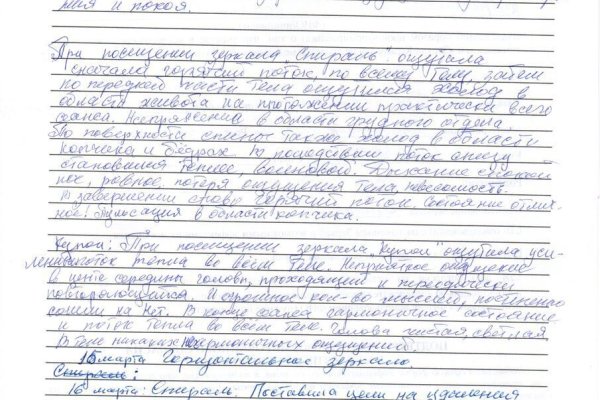 ния и покоя.
При посещении зеркала "Спираль" ощутила
сначала горячий поток, по всему телу, затем
по передней части тела ощущался холод в
области живота на протяжении практически всего
сеанса. Напряжение в области грудного отдела.
По поверхности спины также холод в области
копчика и бедрах. В последствии поток снизу
становился теплее, волновой. Дыхание спокой
ное, ровное, потеря ощущения тела, невесомость.
В завершении снова горячий поток. Состояние отлич-
ное. Пульсация в области копчика.
Купол: При посещении зеркала "Купол" ощутила уси-
ление поток тепла во всем теле. Неприятное ощущение
в центре середины головы, проходящий и переодически
повторяющийся. И огромное кол-во мыслей, постепенно
сошли на нет. В конце сеанса гармоничное состояние
и поток тепла во всем теле. Голова чистая, светлая,
В теле никаких не гармоничных ощущений.
15 марта Горизонтальное зеркало.
Спираль:
16 марта: Спираль. Поставила цели на удаления